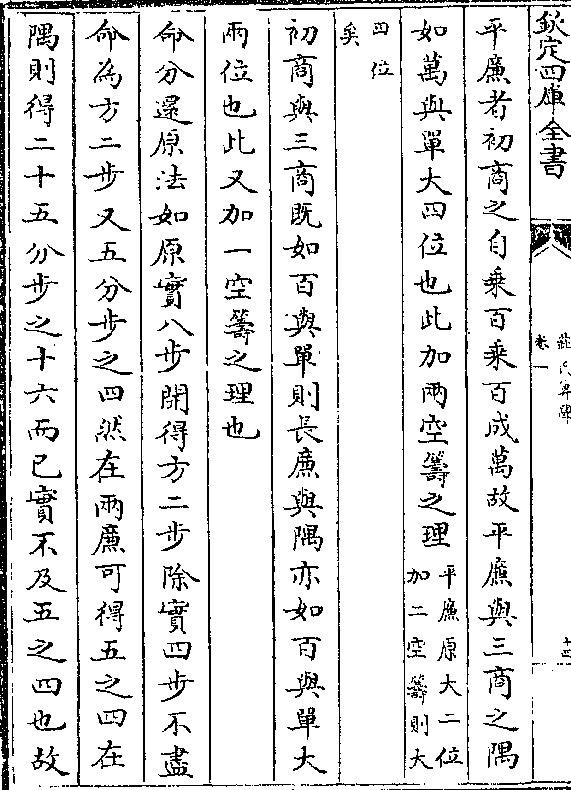 欽定四庫全書
卷一
十四
平廉者初商之自乘百乘百成萬故平廉與三商之隅
如萬與單大四位也此加兩空籌之理平廉原大二位加二空籌則大
四位矣
初商與三商既如百與單則長廉與隅亦如百與單大
兩位也此又加一空籌之理也
命分還原法如原實八步開得方二步除實四步不盡
命為方二步又五分步之四然在兩廉可得五之四在
隅則得二十五分步之十六而已實不及五之四也故